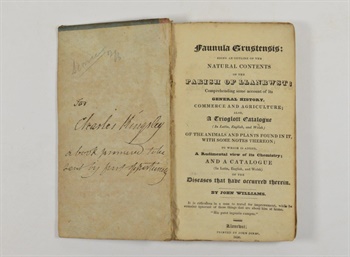 For
Charles Kingsley
a book promised to be
sent by first opportunity
Faunula Grustensis:
BEING AN OUTLINE OF THE
NATURAL CONTENTS
OF THE
PARISH OF LLANRWST:
Comprehending some account of its
GENERAL HISTORY,
COMMERCE AND AGRICULTURE;
ALSO
A Trioglott Catalogue
(In Latin, English, and Welsh)
OF THE ANIMALS AND PLANTS FOUND IN IT,
WITH SOME NOTES THEREON;
TO WHICH IS ADDED,
A Rudimental view of its Chemistry;
AND A CATALOGUE
(In Latin, English, and Welsh)
OF THE
Diseases that have occurred therein.
BY JOHN WILLIAMS.
Llanrwst:
PRINTED BY JOHN JONES.
1830.